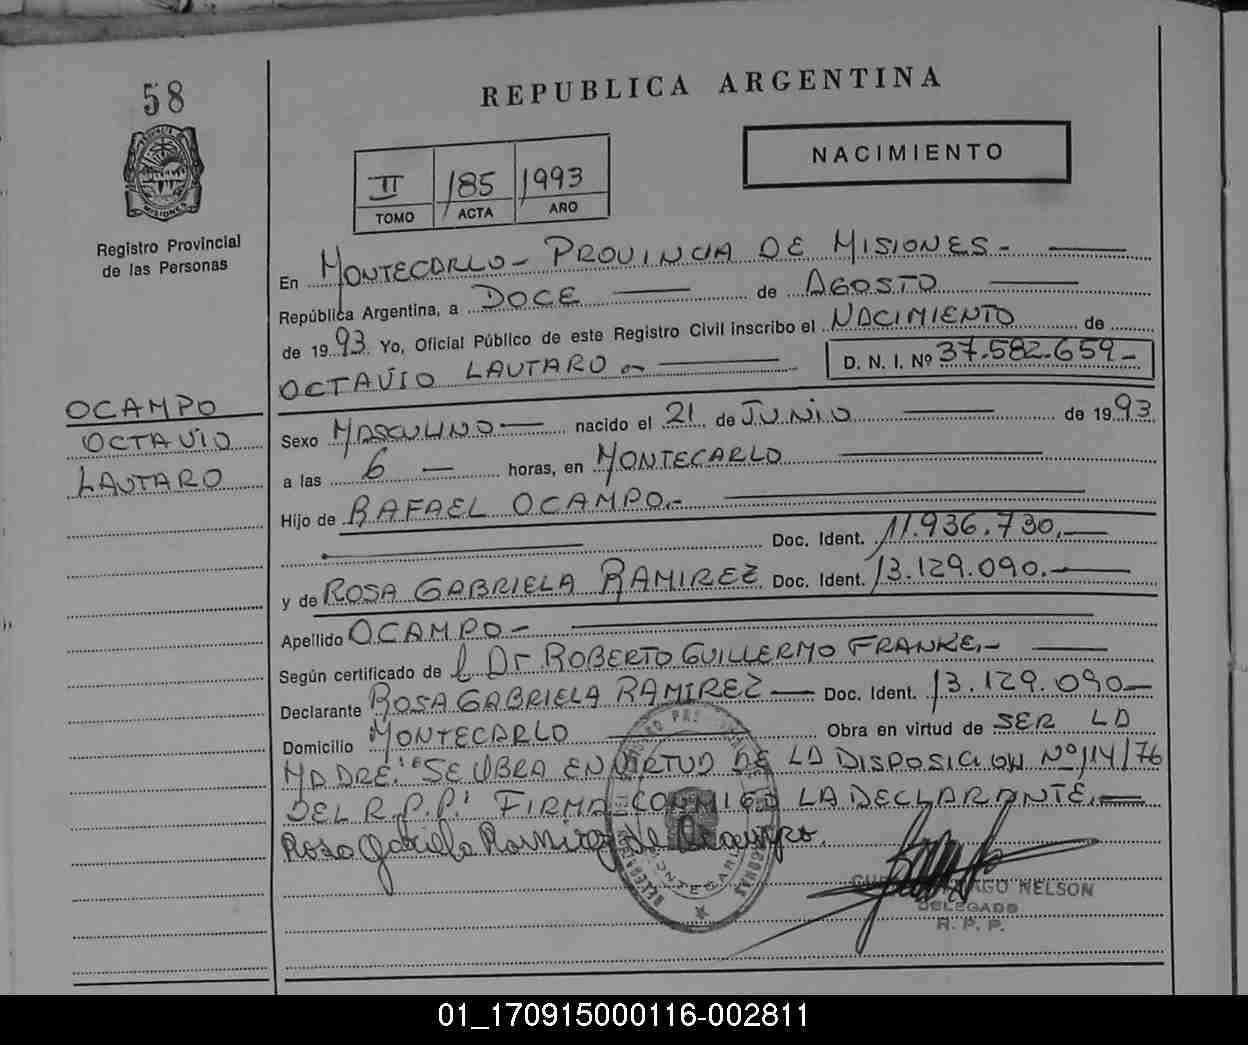 58
REPUBLICA ARGENTINA
NACIMIENTO
II 185 1993
TOMO ACTA AÑO
MISIONES
Registro Provincial
de las Personas
En MONTECARLO - PROVINCIA DE MISIONES -
República Argentina, a DOCE de AGOSTO
de 1993 Yo, Oficial Público de este Registro Civil inscribo el NACIMIENTO de
OCTAVIO LAUTARO D. N. I. Nº 37.582.659-
OCAMPO
OCTAVIO
LAUTARO
Sexo MASCULINO nacido el 21 de JUNIO de 1993
a las 6 horas, en MONTECARLO
Hijo de RAFAEL OCAMPO.-
Doc. Ident. 11.936.730.
y de ROSA GABRIELA RAMIREZ Doc. Ident. 13.129.090.
Apellido OCAMPO -
Según certificado de l Dr ROBERTO GUILLERMO FRANKE.-
Declarante ROSA GABRIELA RAMIREZ Doc. Ident. 13.129.090
Domicilio MONTECARLO Obra en virtud de SER LA
MADRE. "SE OBRA EN VIRTUD DE LA DISPOSICION Nº 114/76
DEL R.P.P." FIRMA CONMIGO LA DECLARANTE.
Rosa Gabriela Ramirez de Ocampo.
NELSON
DELEGADO
R. P. P.
MONTECARLO
01_170915000116-002811